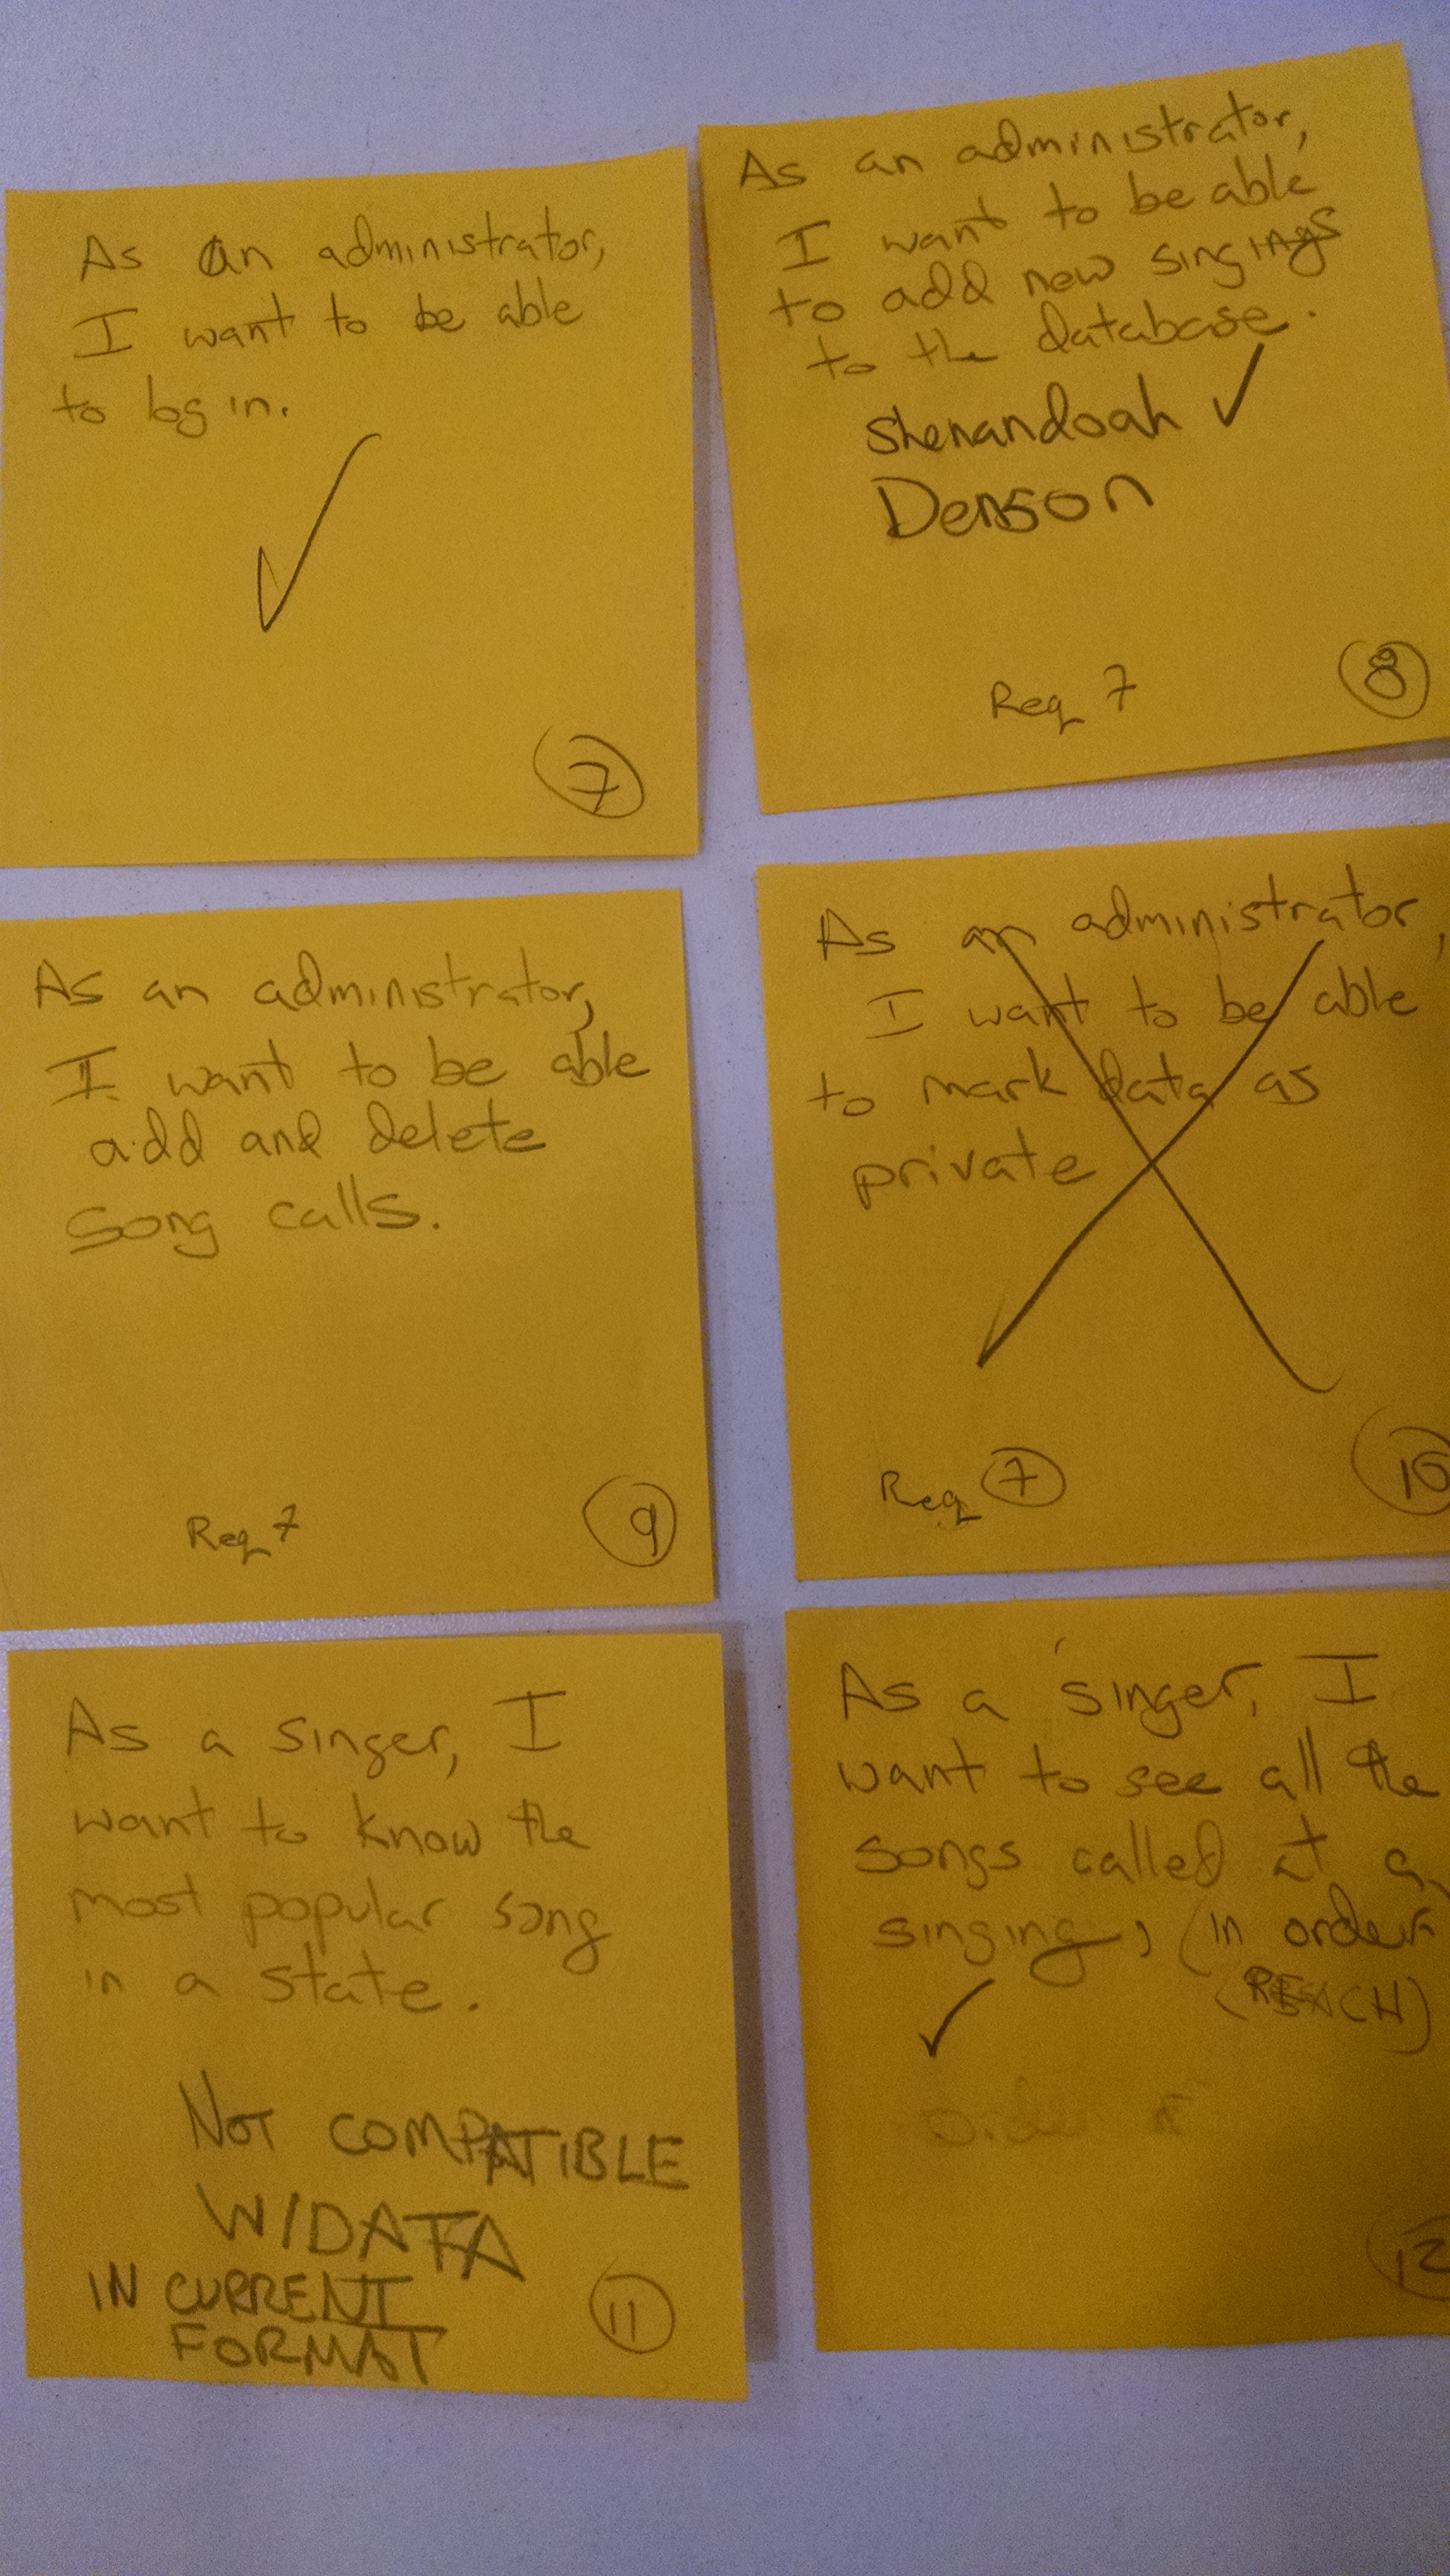 As an administrator,
I want to be able
to log in.
7
As an administrator,
I want to be able
to add new singings
to the database.
Shenandoah ✓
Denson
Req 7
8
As an administrator,
I want to be able
add and delete
song calls.
Req 7
9
As an administrator,
I want to be able
to mark data as
private
Req 7
10
As a singer, I
want to know the
most popular song
in a state.
NOT COMPATIBLE
W/DATA
IN CURRENT
FORMAT
11
As a singer, I
want to see all the
songs called at a
singing, (in order
(REACH)
order
12